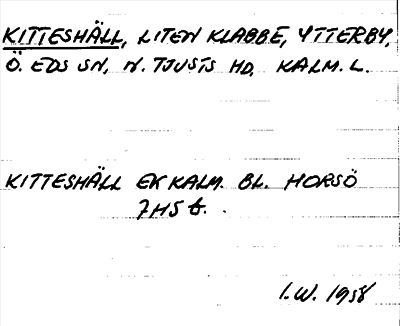 KITTESHÄLL, LITEN KLABBE, YTTERBY,
Ö. EDS SN, N. TJUSTS HD, KALM. L.
KITTESHÄLL EK KALM. BL. HORSÖ
7H5
I.W. 1958